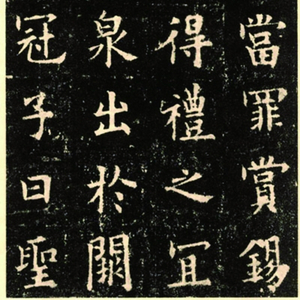 當罪賞錫
得禮之冝
泉出於闕
冠子曰聖